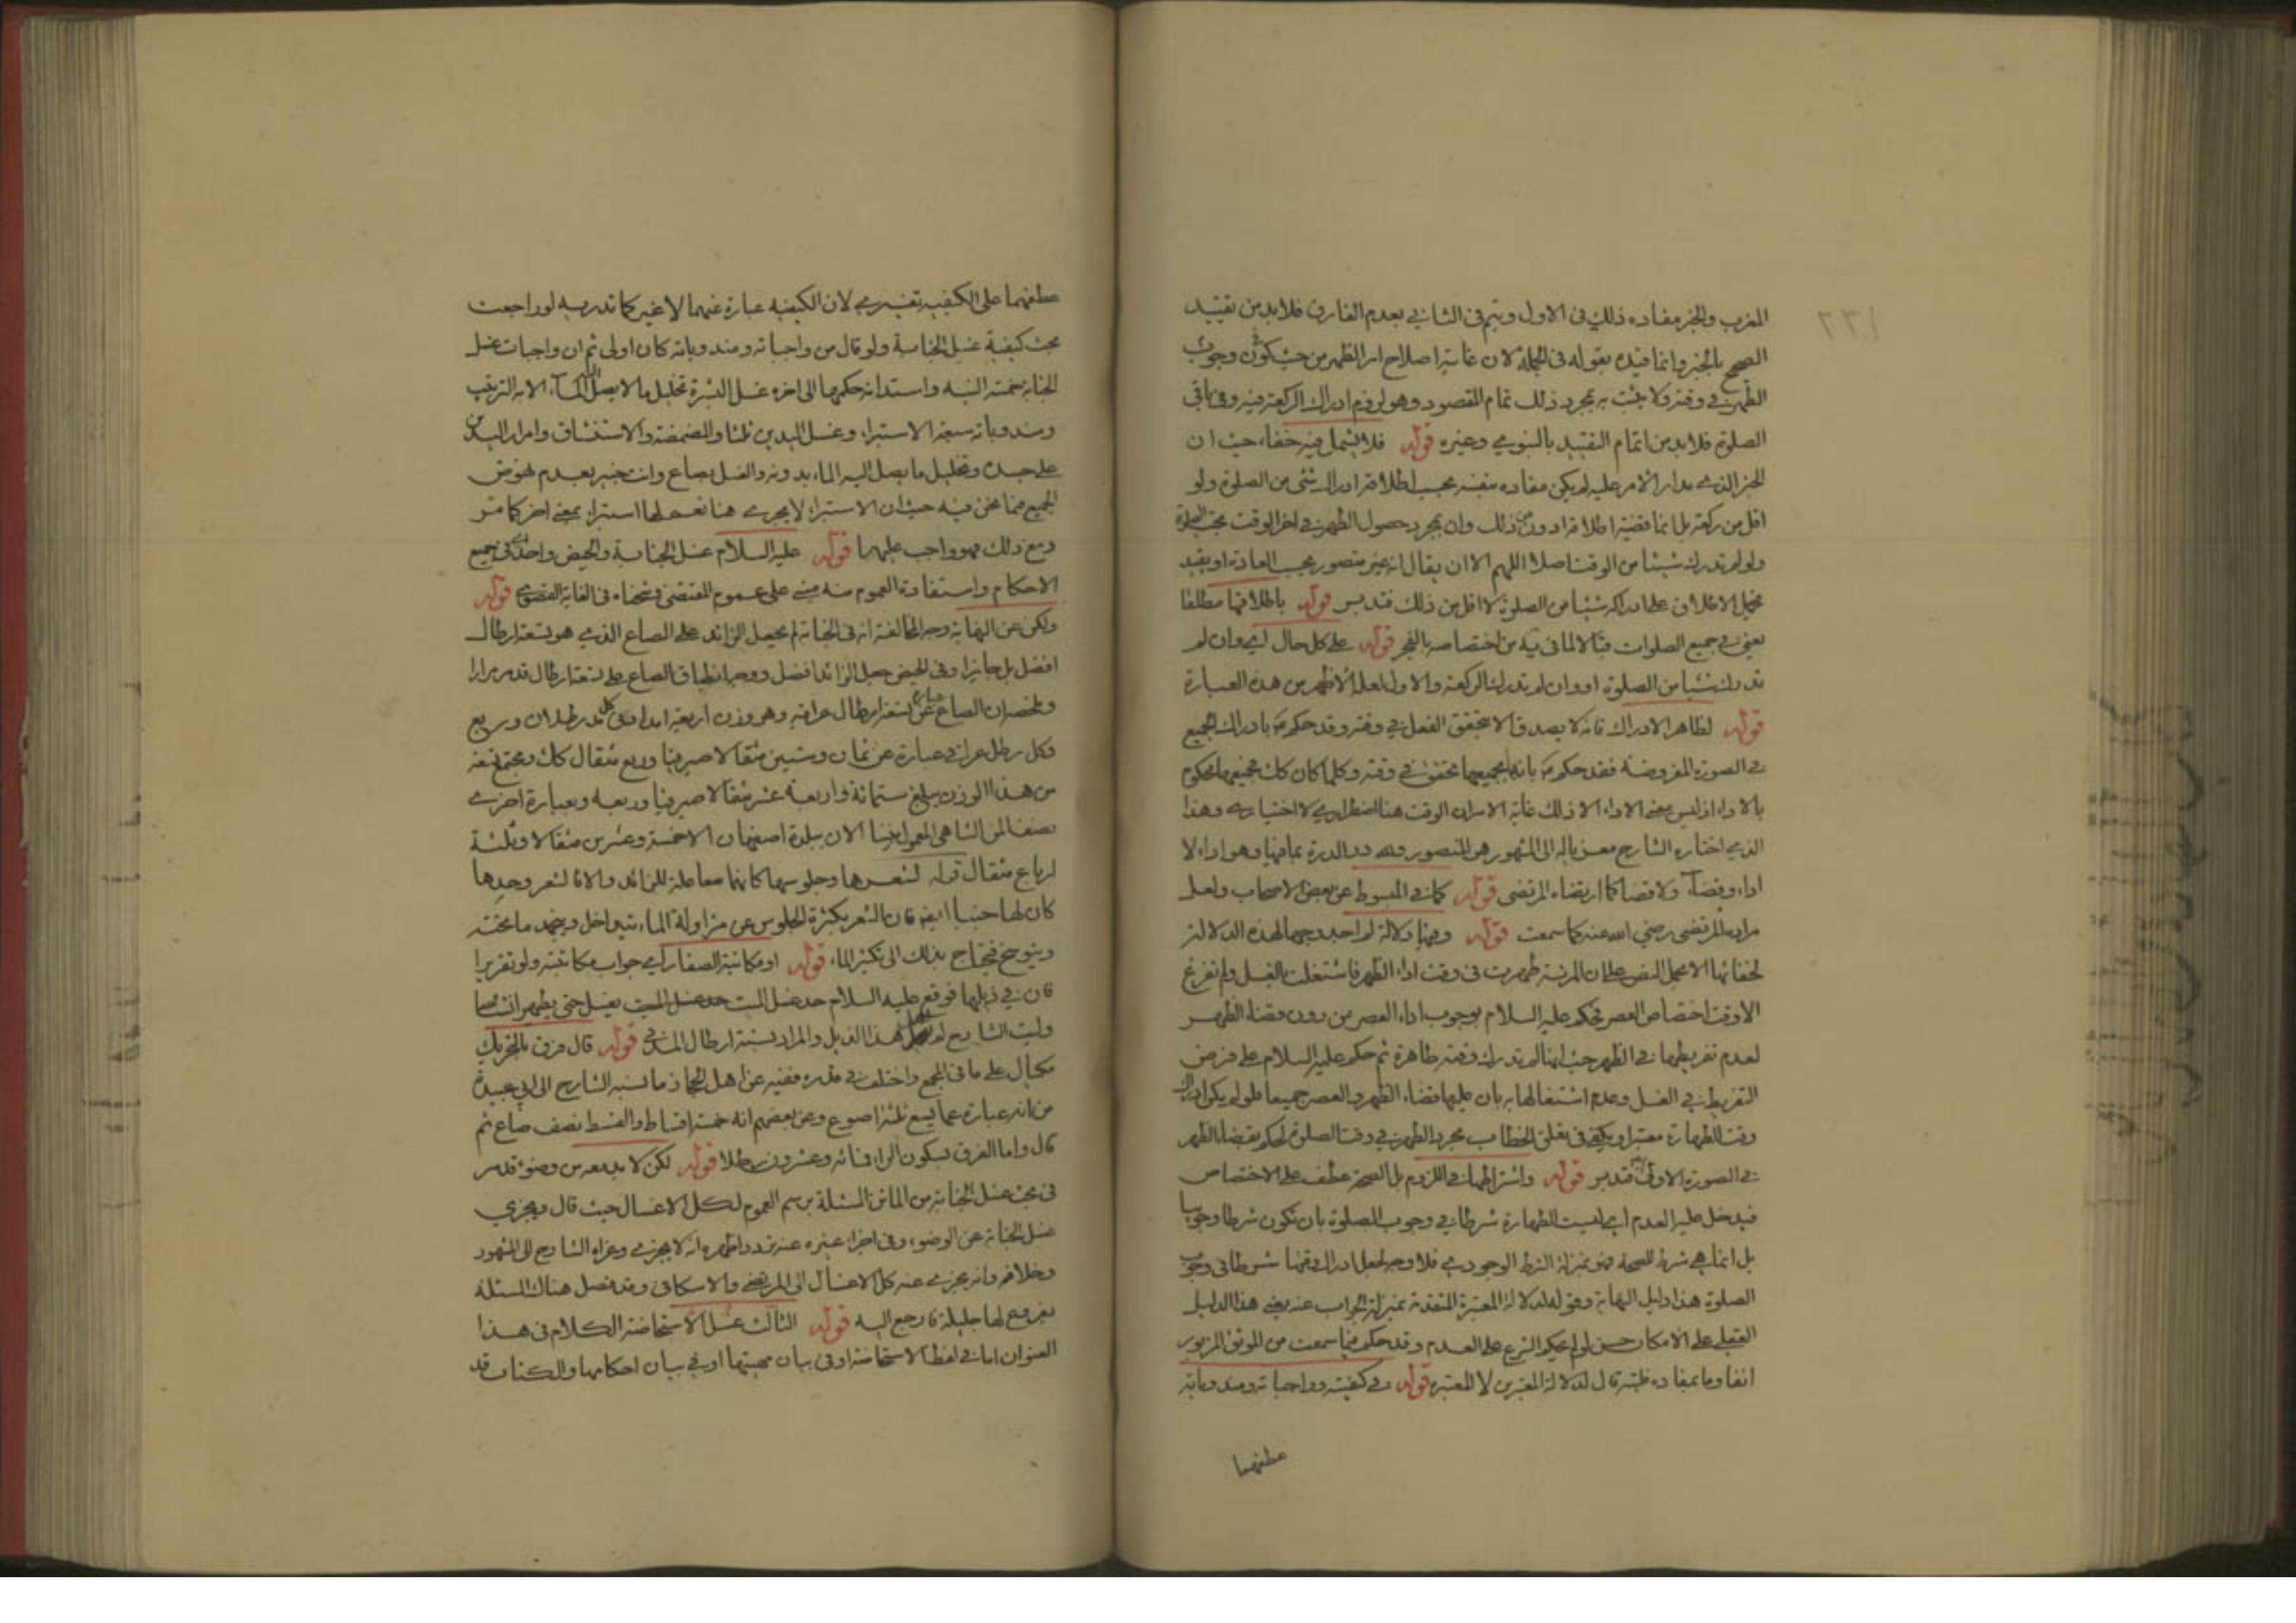 المغرب والخبر مفاده ذلك في الاول ويتم في الثاني بعدم الفارق فلا بد من تقييد
الصحيح بالخبر وانما قيده بقوله في الجملة لان غايته اصلاح امر الظهر من حيث كون وجوب
الظهر في وقته ولا يثبت به بمجرد ذلك تمام المقصود وهو لزوم ادراك الركعة فيه وفي باقي
الصلوة فلا بد من اتمام التقييد بالنبوي وغيره قوله فلا يشمل فيه خفاء حيث ان
الخبر الذي مدار الامر عليه لم يكن مفاده بنفسه بحسب اطلاقه ادراك شئ من الصلوة ولو
اقل من ركعة بل انما قضية اطلاقه ادون من ذلك وان بمجرد حصول الطهر في اخر الوقت يجب الصلوة
ولو لم تدرك شيئا من الوقت اصلا اللهم الا ان يقال انه غير متصور بحسب العادة او يقيد
بحمل الاطلاق على ادراك شيئا من الصلوة لا اقل من ذلك فتدبر قوله باطلاقها مطلقا
يعني في جميع الصلوات قبالا لما في من اختصاصه بالفجر قوله على كل حال اي وان لم
تدرك شيئا من الصلوة او وان لم تدرك الركعة والاول لعله الاظهر من هذه العبارة
قوله لظاهر الادراك فانه لا يصدق الا بتحقق الفعل في وقته وقد حكم بادراك الجميع
في الصورة المفروضة فقد حكم بانه بجميعها محقق في وقته وكلما كان كك فجميعها محكوم
بالاداء اذ ليس معنى الاداء الا ذلك غاية الامر ان الوقت هنا اضطراري لا اختياري وهذا
الذي اختاره الشارح معزيا له الى المشهور هو المنصور ولله در الدرة بما فيها وهو اداء لا
اداء وقضاء ولا قضا كما ارتضاه المرتضى قوله كما في المبسوط عن بعض الاصحاب ولعل
مراده المرتضى رضي الله عنه كما سمعت قوله وفيها دلالة لم اجد وجها لهذه الدلالة
لخفائها الا بحمل النص على ان المرئة طهرت في وقت اداء الظهر فاشتغلت بالغسل ولم تفرغ
الا وقت اختصاص العصر فحكم عليه السلام بوجوب اداء العصر من دون قضاء الظهر
لعدم تفريطها في الظهر حيث انها لم تدرك وقته طاهرة ثم حكم عليه السلام على فرض
التفريط في الغسل وعدم اشتغالها به بان عليها قضاء الظهر والعصر جميعا فلو لم يكن ادراك
وقت الطهارة معتبرا ويكفي في تعلق الخطاب بمجرد الطهر في وقت الصلوة لحكم بقضاء الظهر
في الصورة الاولى فتدبر قوله واشتراطها في اللزوم بل الصحة عطف على الاختصاص
فيدخل عليه العدم اي ليست الطهارة شرطا في وجوب الصلوة بان تكون شرطا وجوبيا
بل انما هي شرط للصحة فهو بمنزلة الشرط الوجودي فلا وجه لجعل ادراك وقتها شرطا في وجوب
الصلوة هذا دليل النهاية وقوله لدلالة المعتبرة المتقدمة بمنزلة الجواب عنه يعني هذا الدليل
العقلي على الامكان حسن لو لم يحكم الشرع على العدم وقد حكم فيما سمعت من الموثق المزبور
انفا وما بمفاده قال لدلالة المعتبرين لا المعتبرة قوله وفي كيفيته وواجباته ومندوباته
عطفهما
عطفهما على الكيفية تفسيري لان الكيفية عبارة عنهما لا غير كما تدريه لو راجعت
بحث كيفية غسل الجنابة ولو قال من واجباته ومندوباته كان اولى ثم ان واجبات غسل
الجنابة خمسة النية واستدامة حكمها الى اخره غسل البشرة تخليل ما لا يصل اليه الماء الا به الترتيب
ومندوباته سبعة الاستبراء وغسل اليدين ثلثا والمضمضة والاستنشاق وامرار اليدين
على جسده وتخليل ما يصل اليه الماء بدونه والغسل بصاع وانت خبير بعدم نهوض
الجميع فيما نحن فيه حيث ان الاستبراء لا يجري هنا نعم لها استبراء بمعنى اخر كما مر
ومع ذلك فهو واجب عليها قوله عليه السلام غسل الجنابة والحيض واحد اي في جميع
الاحكام واستفادة العموم منه مبني على عموم المقتضى في الغاية القصوى قوله
ولكن عن النهاية وجه المخالفة انه في الجنابة لم يجعل الزائد على الصاع الذي هو تسعة ارطال
افضل بل جايزا وفي الحيض جعل الزائد افضل ووجه انطباق الصاع على تسعة ارطال قد مر مرارا
وملخصه ان الصاع عبارة عن تسعة ارطال عراقية وهو وزن اربعة امداد وكل مد رطلان وربع
وكل رطل عراقي عبارة عن ثمان وستين مثقالا صيرفيا وربع مثقال كك ومجتمع تسعة
من هذا الوزن يبلغ ستمائة واربعة عشر مثقالا صيرفيا وربعه وبعبارة اخرى
نصف المن الشاهي المعمول بيننا الان ببلدة اصفهان الا خمسة وعشرين مثقالا وثلثة
ارباع مثقال قوله لشعرها وجلوسها كانهما معا علة للزائد والا فالشعر وحدها
كان لها جنبا ايضا فان الشعر بكثرة الجلوس عن مزاولة الماء يتداخل ويتجمد ما تحته
ويتوسخ فيحتاج بذلك الى تكثير الماء قوله او مكاتبة الصفار اي جواب مكاتبته ولو تقريرا
فان في ذيلها فوقع عليه السلام حد غسل الميت حد غسل الميت يغسل حتى يطهر انشاء الله
وليت الشارح لم هذا الذيل والمراد بستة ارطال المدني قوله قال فرق بالتحريك
مكيال على ما في المجمع واختلف في قدره ففيه عن اهل الحجاز ما نسبه الشارح الى ابي عبيدة
من انه عبارة عما يسع ثلثة اصوع وعن بعضهم انه خمسة اقساط والقسط نصف صاع ثم
قال واما الفرق بسكون الراء فمائه وعشرون رطلا قوله لكن لا بد معه من وضوء قد مر
في بحث غسل الجنابة من الماتن المسئلة برسم العموم لكل الاغسال حيث قال ويجزي
غسل الجنابة عن الوضوء وفي اجزاء غيره عنه تردد اظهره انه لا يجزي وعزاه الشارح الى المشهور
وخلافه وانه يجزي عنه كل الاغسال الى المرتضى والاسكافي وقد فصل هناك المسئلة
بفروع لها جليلة فارجع اليه قوله الثالث غسل الاستحاضة الكلام في هذا
العنوان اما في لفظ الاستحاضة او في بيان مهيتها او في بيان احكامها والكتاب قد